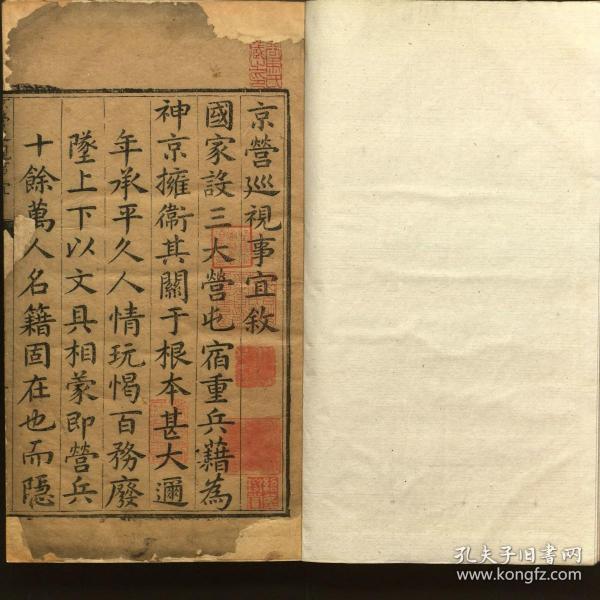 京營廵視事宜敘
國家設三大營屯宿重兵藉為
神京擁衞其關于根本甚大邇
年承平久人情玩愒百務廢
墜上下以文具相蒙即營兵
十餘萬人名籍固在也而隱
孔夫子旧书网
www.kongfz.com